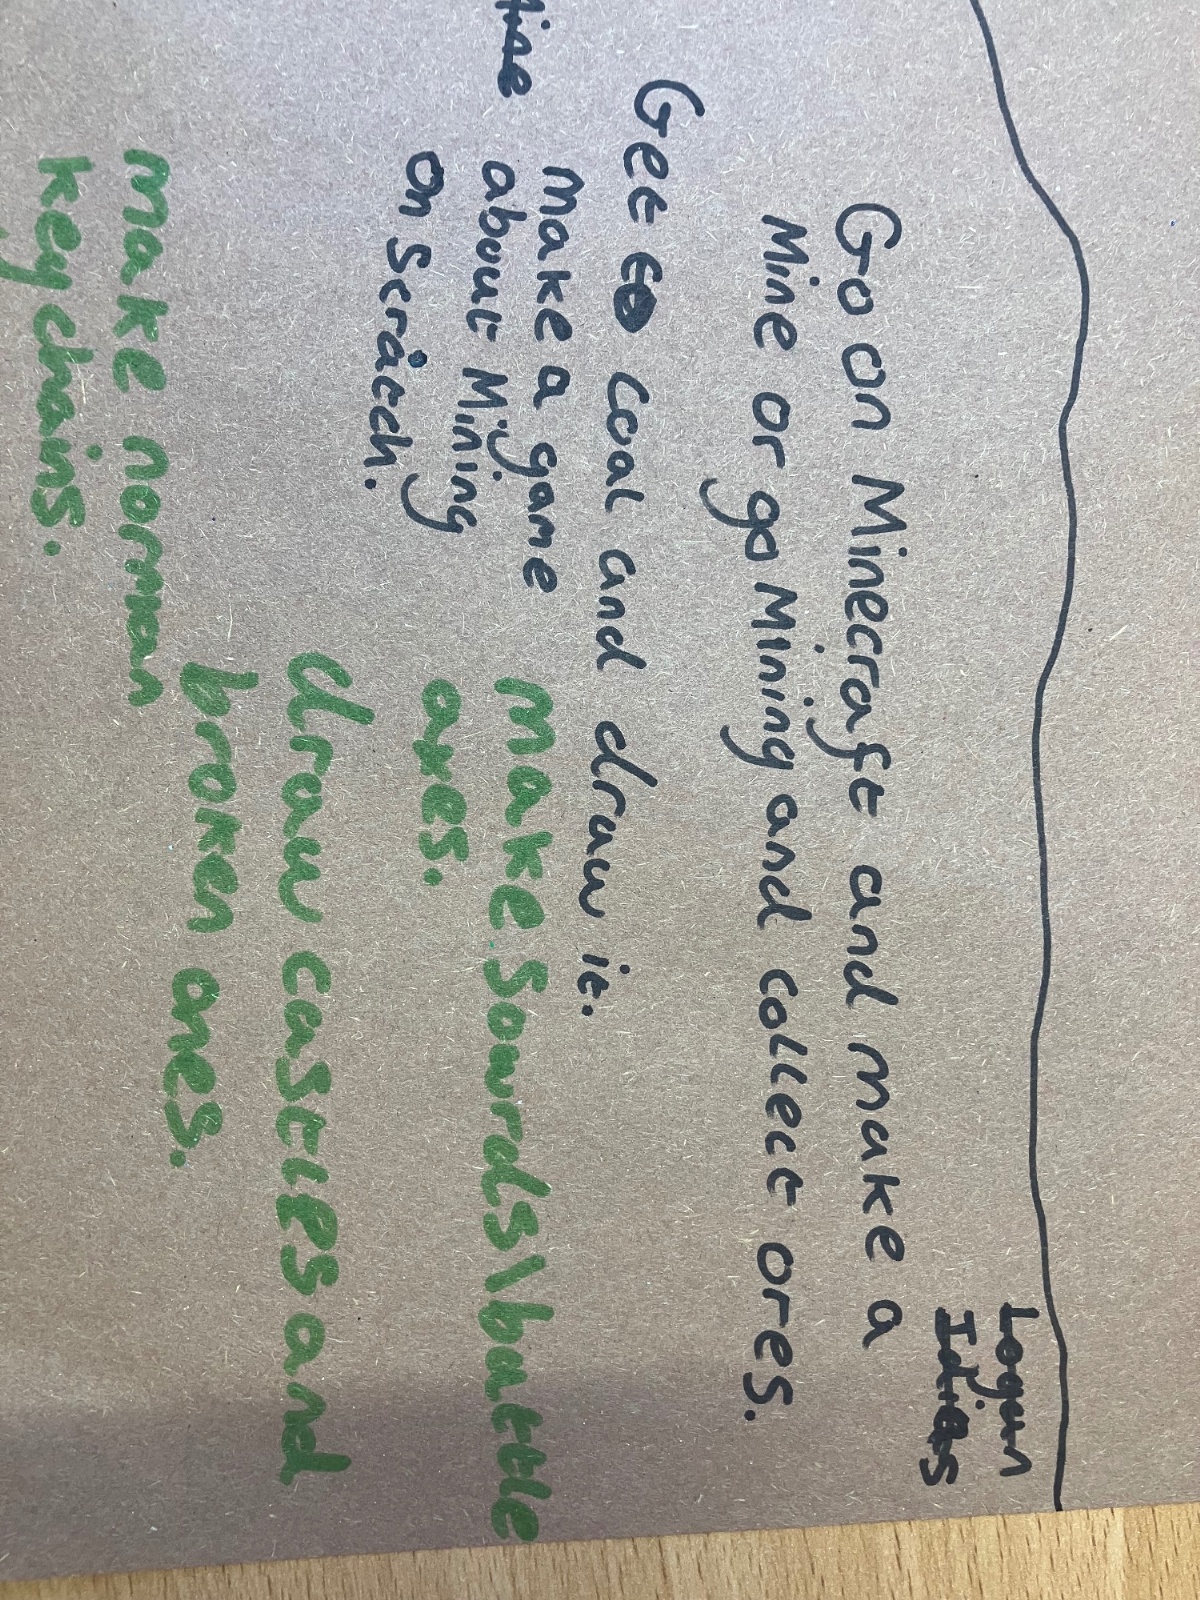 Logan
Idies
Go on Minecraft and make a
Mine or go Mining and collect ores.
Get coal and draw it.
Make a game
about Mining
on Scratch.
make Sowrds\battle
axes.
draw castles and
broken ones.
make norman
keychains.